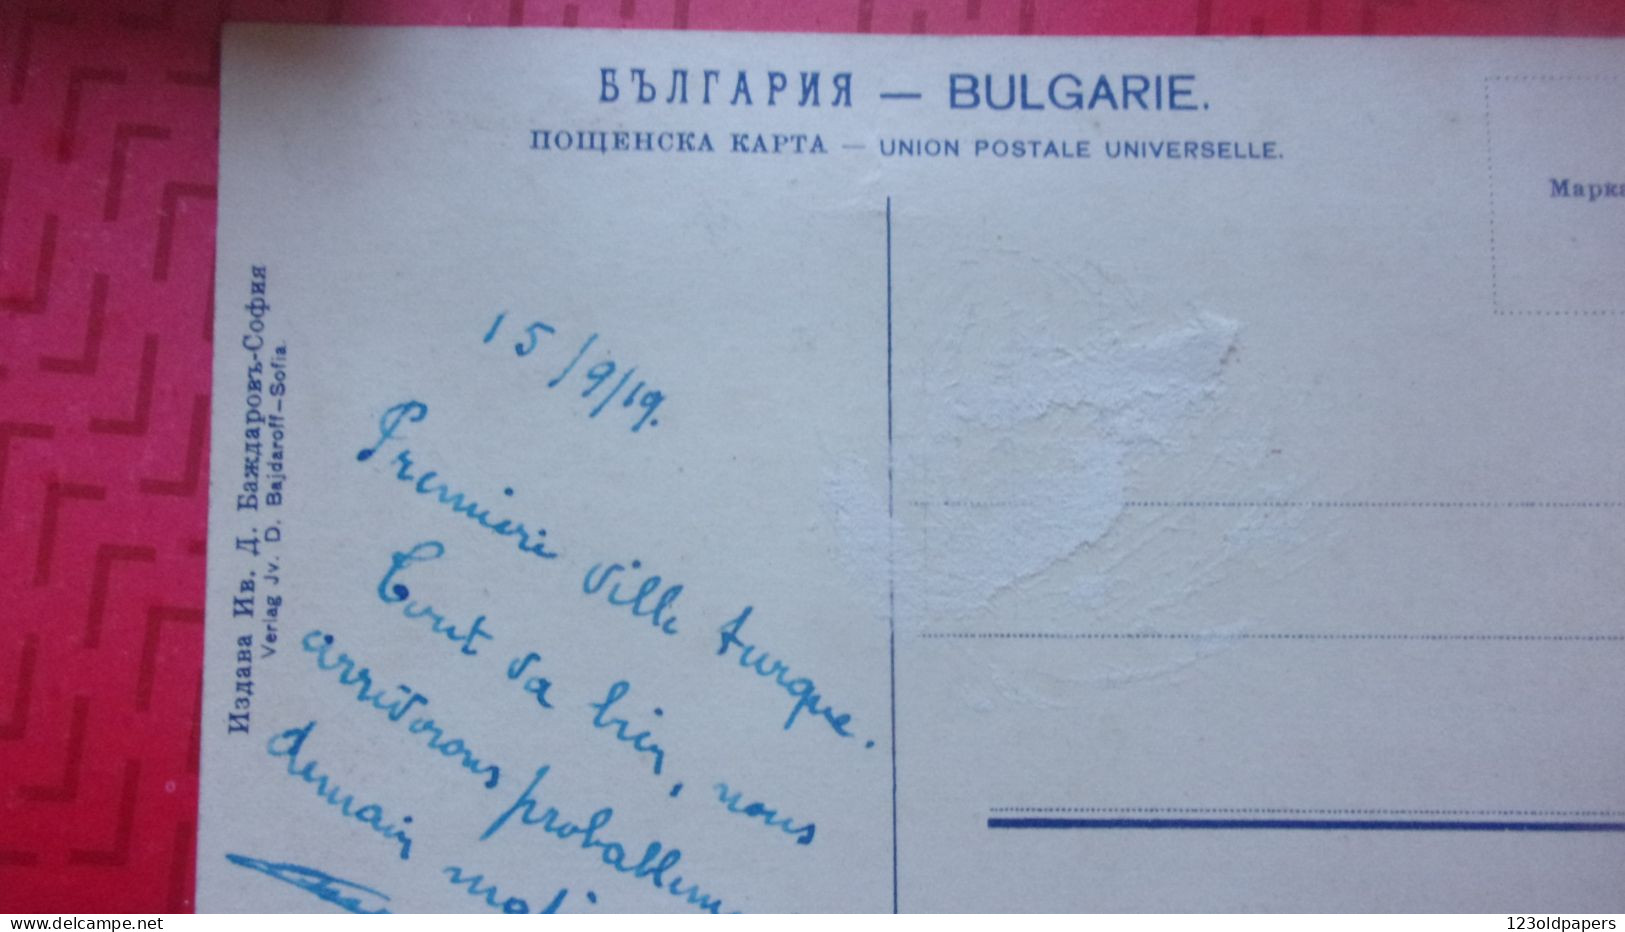 БЪЛГАРИЯ — BULGARIE.
ПОЩЕНСКА КАРТА — UNION POSTALE UNIVERSELLE.
Марка
Издава Ив. Д. Баждаровъ-София
Verlag Jv. D. Bajdaroff-Sofia.
15/9/19.
Premiere ville turque.
Tout va bien, nous
arriverons probablem
demain mati
delcampe.net
123oldpapers